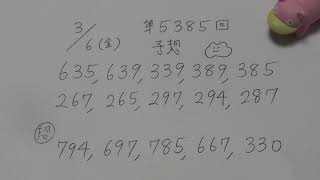 3/6(金) 第5385回
予想
635, 639, 339, 389, 385
267, 265, 297, 294, 287
794, 697, 785, 667, 330